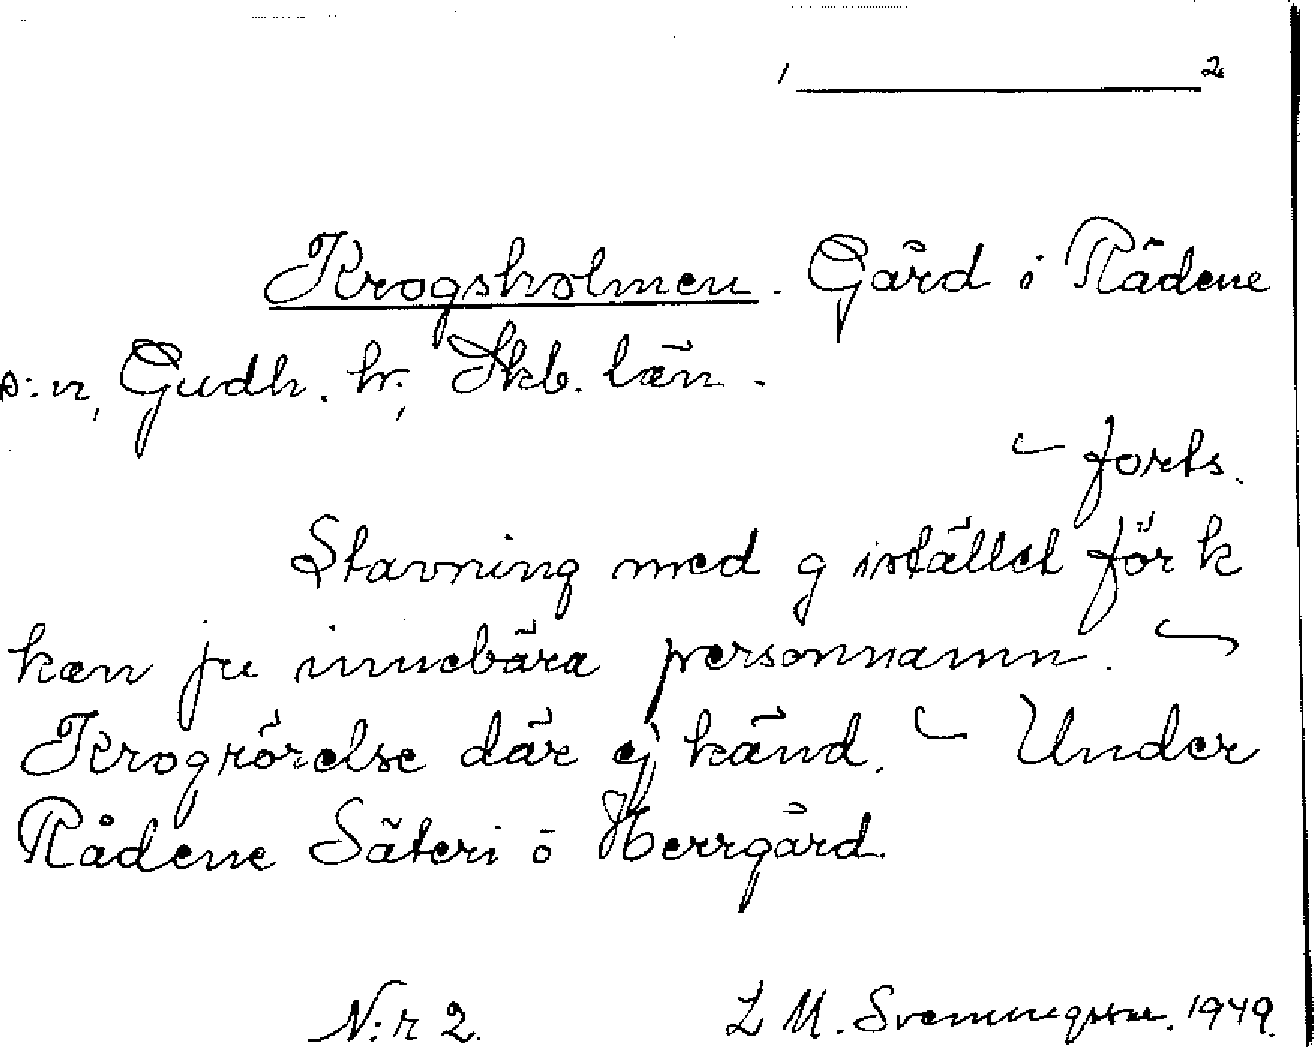 1 2
Krogsholmen. Gård i Rådene
s:n, Gudh. hr, Skb. län.
– forts.
Stavning med g istället för k
kan ju innebära personnamn. –
Krogrörelse där ej känd. – Under
Rådene Säteri o Herrgård.
N:r 2. L M. Svenningsson. 1949.